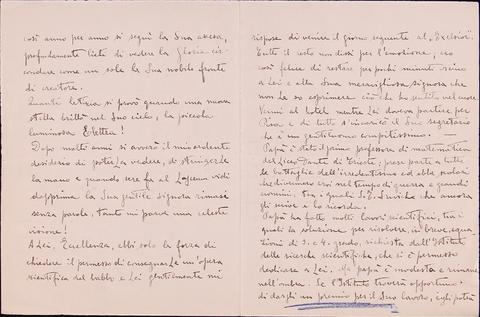 così anno per anno si seguì la Sua ascesa,
profondamente lieti di vedere la Gloria cir-
condare come un sole la Sua nobile fronte
di creatore.
Quanta letizia si provò quando una nuova
stella brillò nel Suo cielo, la piccola
luminosa Elettra!
Dopo molti anni si avverò il mio ardente
desiderio di poterLa vedere, di stringerLe
la mano e quando sere fa al vidi
dapprima la Sua gentile Signora rimasi
senza parola, tanto mi parve una celeste
visione!
A Lei, Eccellenza, ebbi solo la forza di
chiedere il permesso di consegnarLe un'opera
scientifica del babbo e Lei gentilmente mi
rispose di venire il giorno seguente al "Excelsior".
Tutto il resto non dissi per l'emozione, ero
così felice di restare per pochi minuti vicino
a Lei e alla Sua meravigliosa signora che
non Le so esprimere ciò che ho sentito nel cuore.
Venni al hotel mentre Lei doveva partire per
Pisa e di tutto s'incaricò il Suo segretario
che è un gentiluomo compitissimo. —
Papà è stato il primo professore di matematica
del Liceo Dante di Trieste, prese parte a tutte
le battaglie dell'irredentismo ed alla
che divennero eroi nel tempo di guerra e grandi
uomini, tra i quali S. E. Suvich che ancora
gli scrive e lo ricorda.
Papà ha fatto molti lavori scientifici, tra i
quali la soluzione per risolvere, in breve, equa-
zioni di 3. e 4. grado, richiesta dall'Istituto
delle ricerche scientifiche, che si è permesso
dedicare a Lei. Ma papà è modesto e rimane
nell'ombra. Se l'Istituto troverà opportuno
di dargli un premio per il Suo lavoro, egli potrà